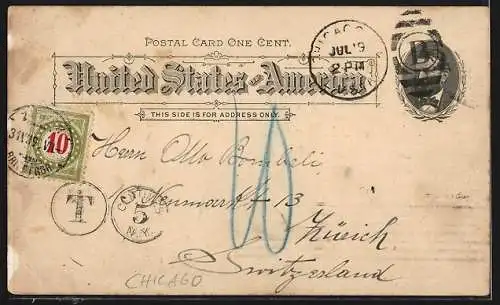 POSTAL CARD ONE CENT.
CHICAGO
JUL 9
2 PM
United States of America
THIS SIDE IS FOR ADDRESS ONLY.
10
10
Herrn Otto Bombeli
T
5
Neumarkt 13
Zürich
Switzerland
CHICAGO